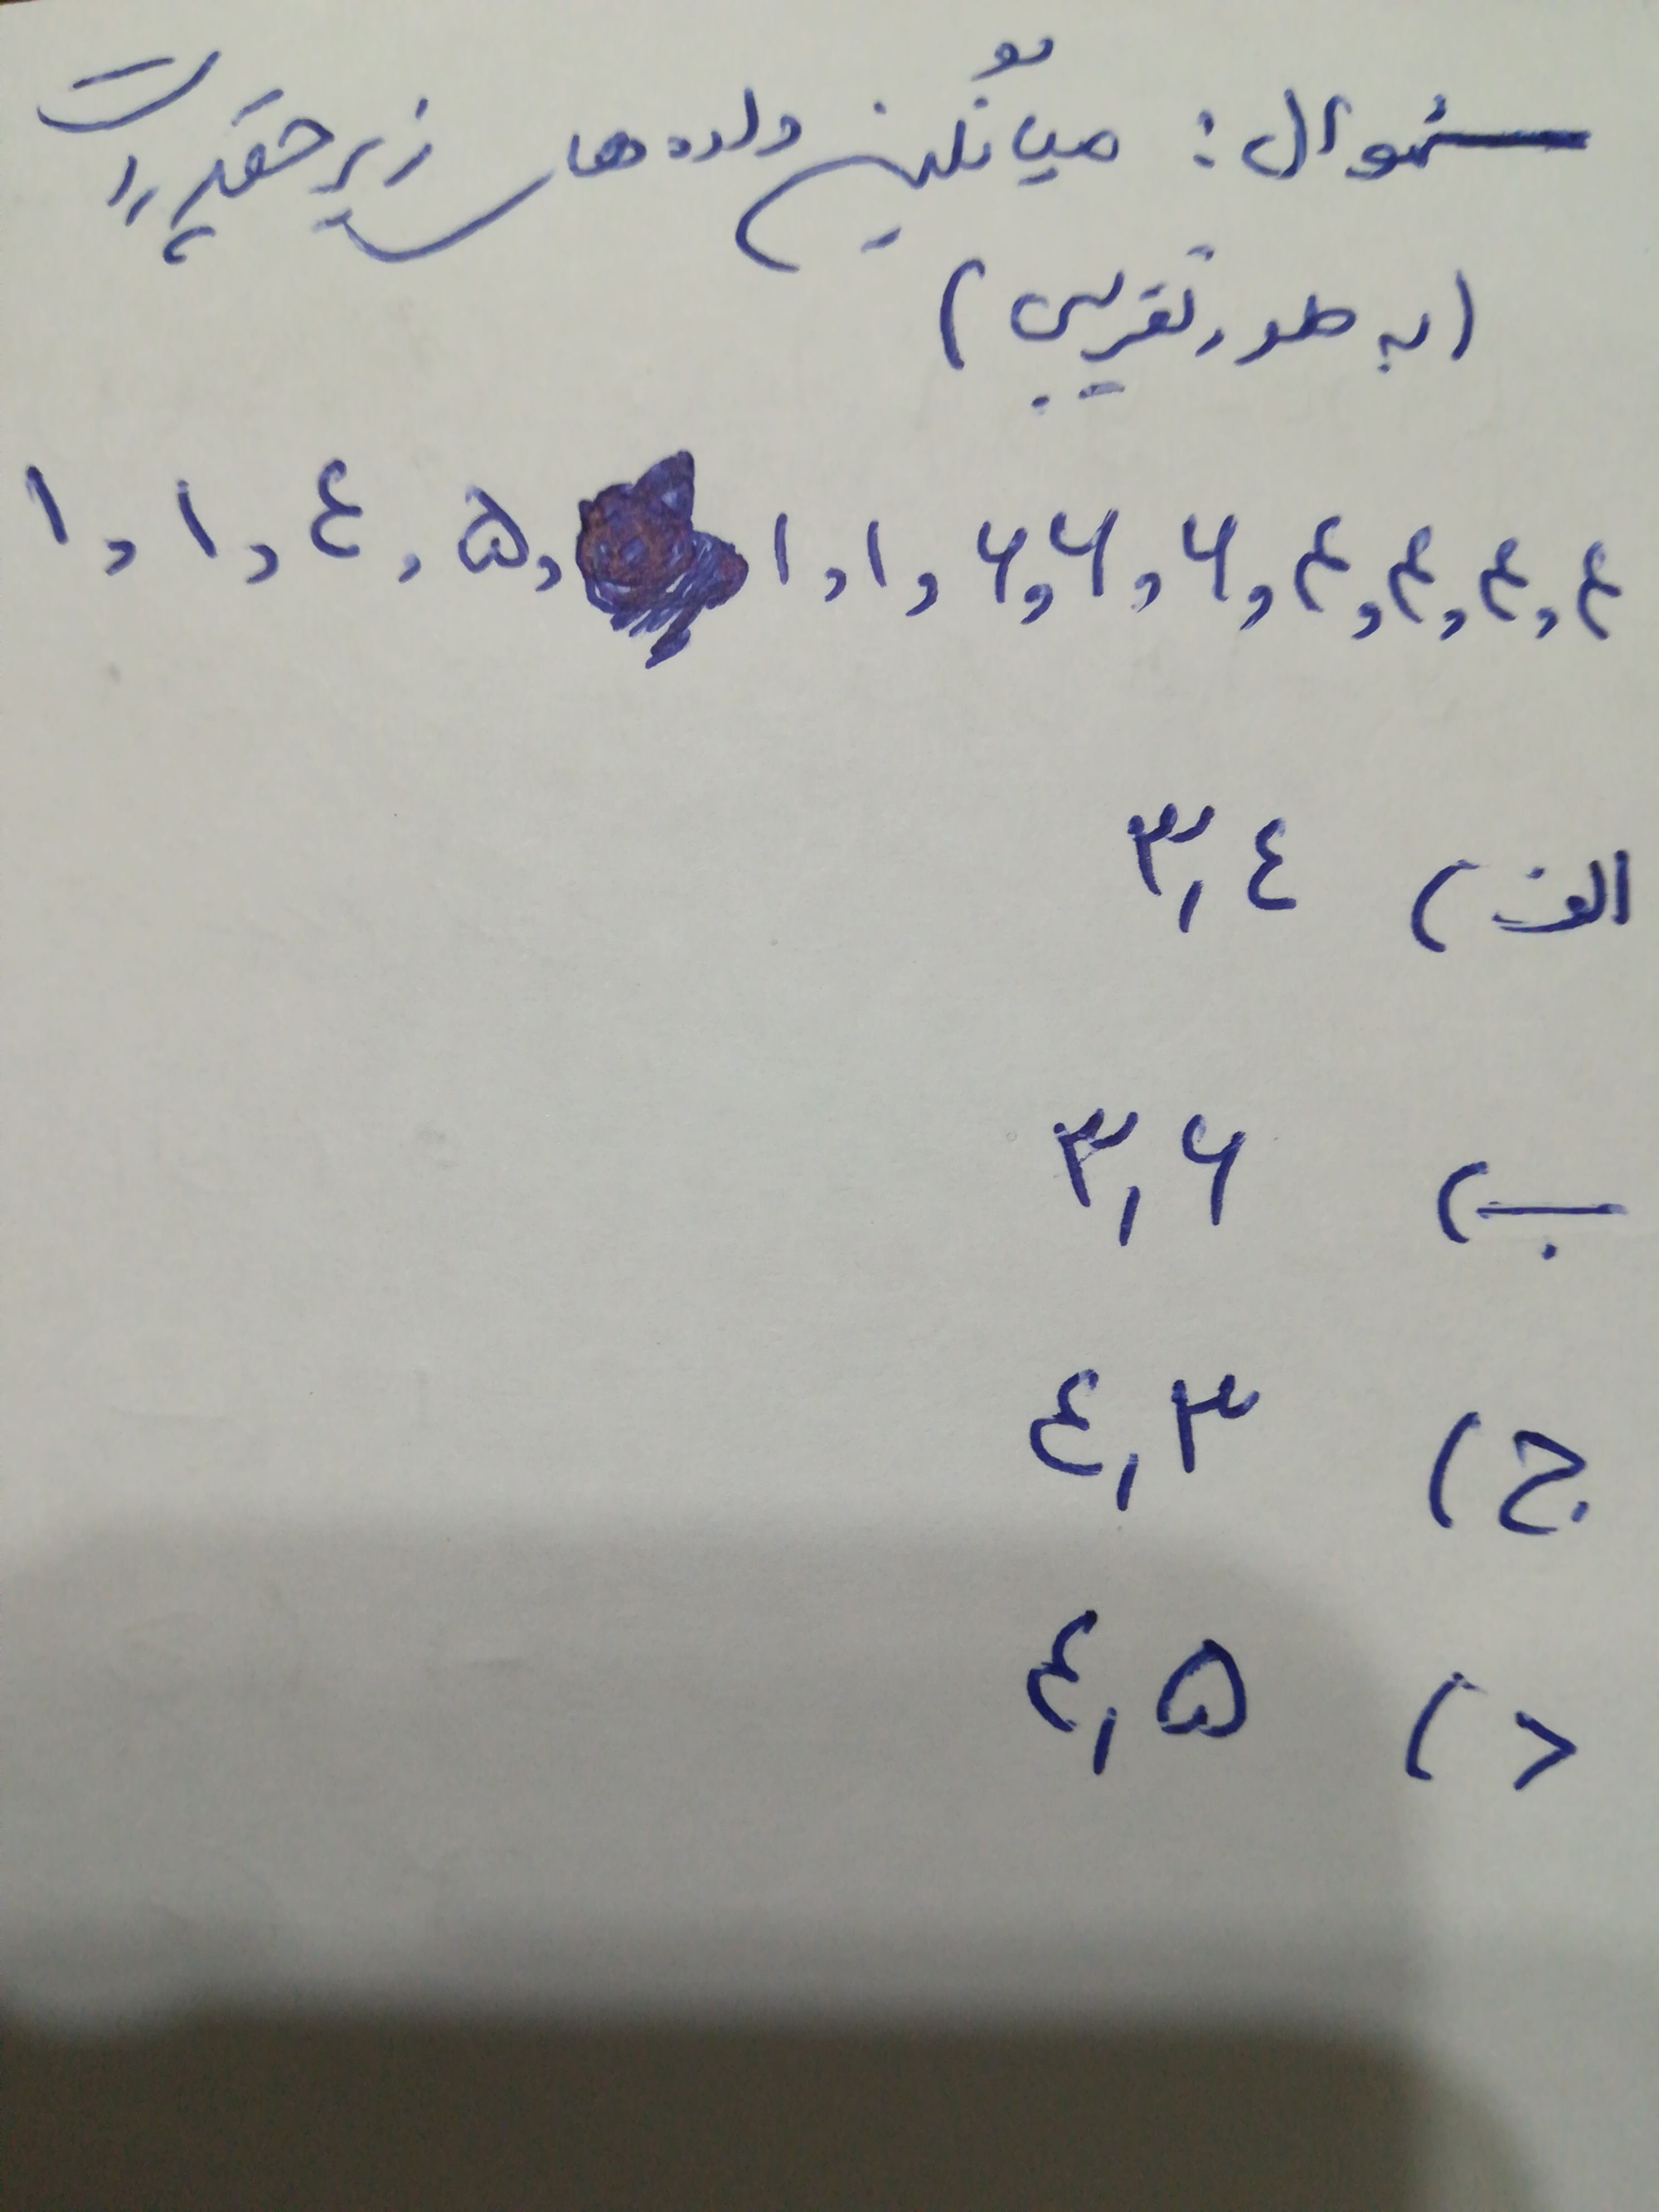 سئوال: میانگین داده های زیر چقدر است
(به طور تقریبی)
۱, ۱, ٤, ۵, ۱, ۱, ۶, ۶, ۶, ۴, ۴, ۴, ۴
الف) ۳,٤
ب) ۳,۶
ج) ٤,۳
د) ٤,۵